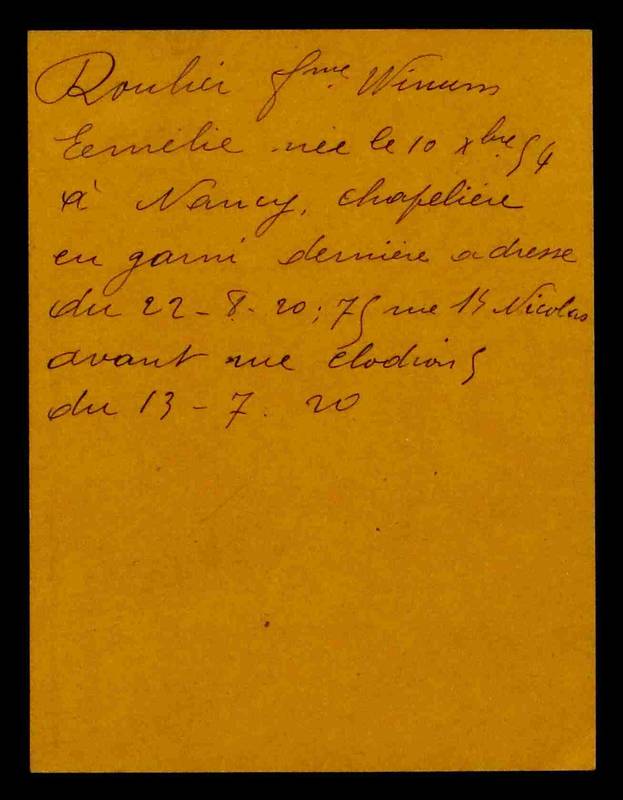 Roulier fme Winum
Eémélie née le 10 xbre 54
à Nancy, chapelière
en garni dernière adresse
du 22-8-20; 75 rue St Nicolas
avant rue Clodion 5
du 13-7. 20